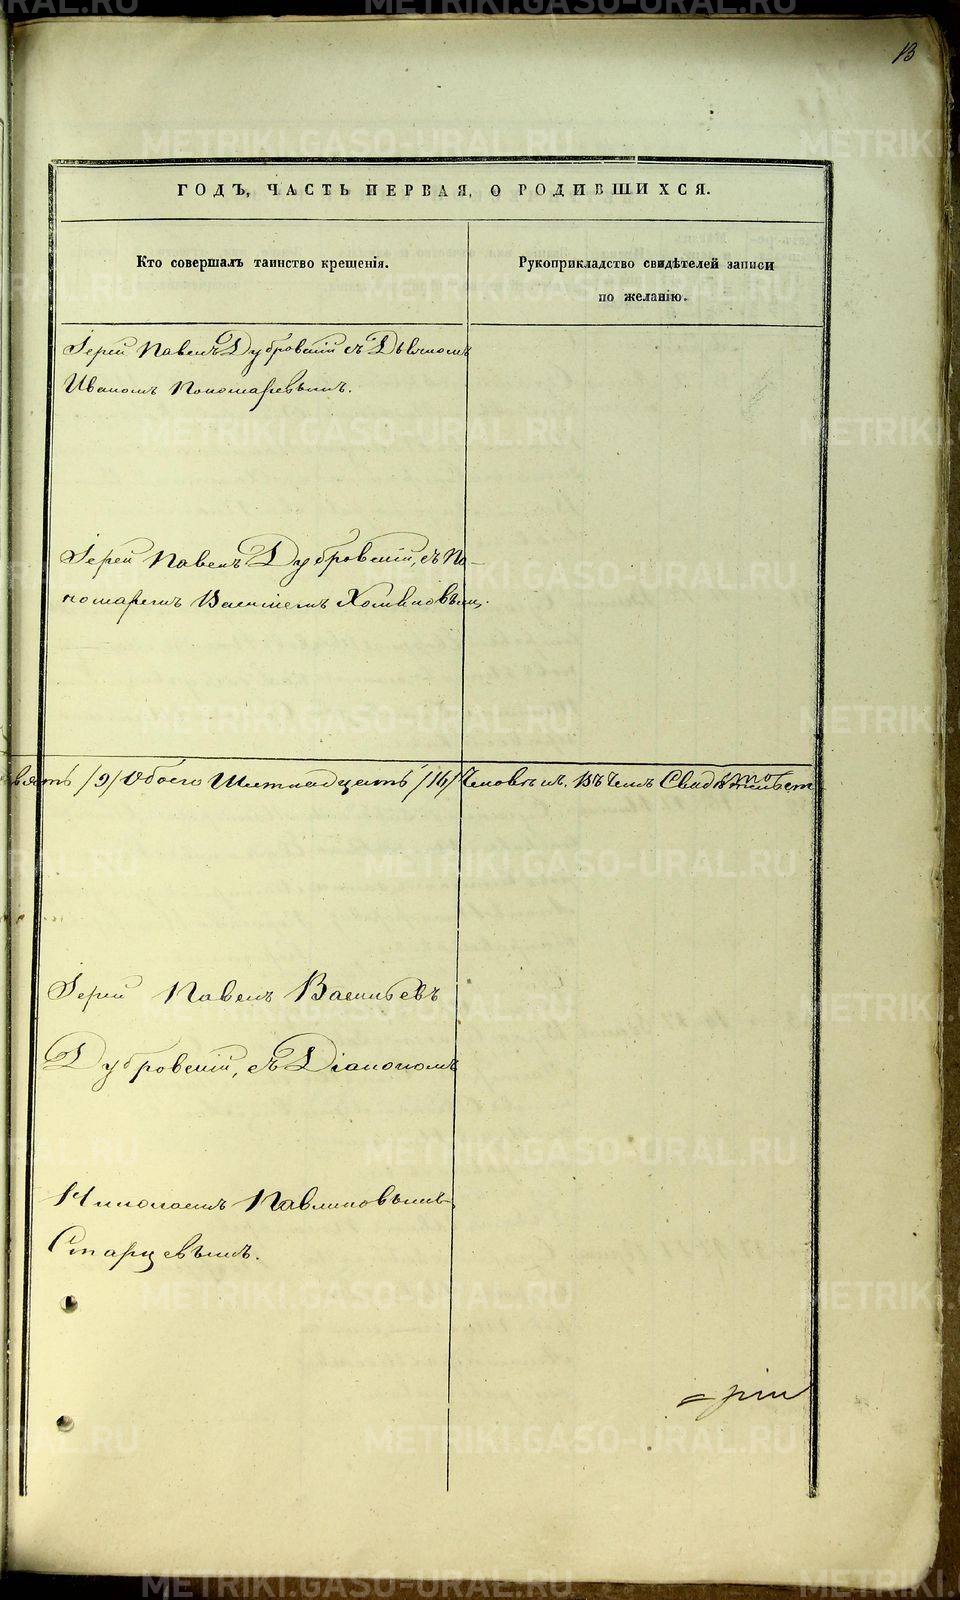 13
ГОДЪ, ЧАСТЬ ПЕРВАЯ, О РОДИВШИХСЯ.
Кто совершалъ таинство крещенія.
Рукоприкладство свидѣтелей записи
по желанію.
Іерей Павелъ Дубровскій съ Дьячкомъ
Иваномъ Пономаревымъ.
Іерей Павелъ Дубровскій, съ По-
номаремъ Василіемъ Хомяковымъ.
вять /9/ Обоего Шестнадцать /16/ Человѣкъ. Въ чемъ Свидѣтельст
Іерей Павелъ Васильевъ
Дубровскій, съ Діакономъ
Николаемъ Павлиновымъ
Старцевымъ.
METRIKI.GASO-URAL.RU